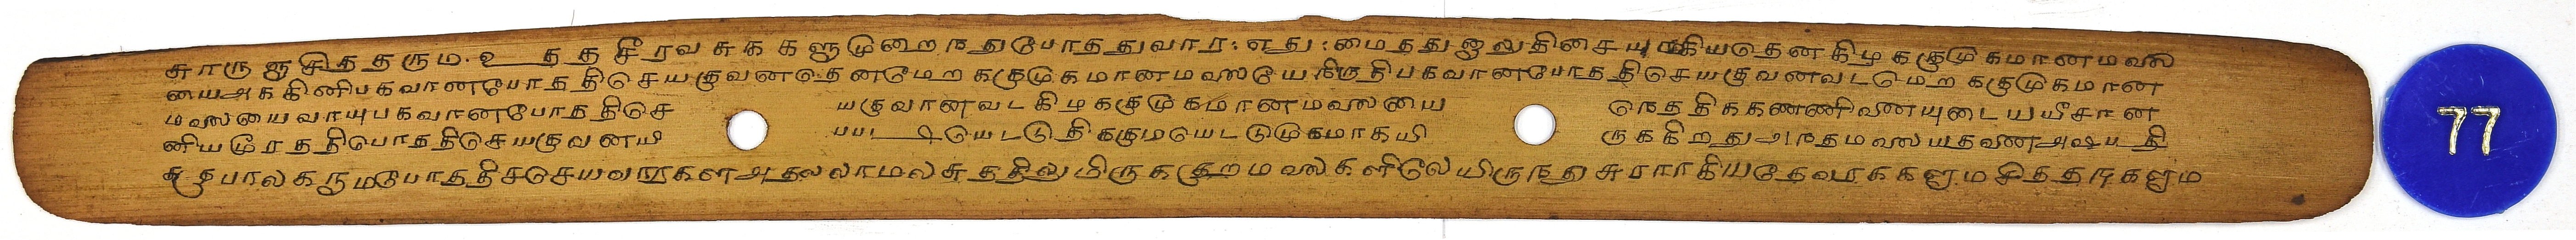 சுாருஞசித்தரும. உ த த சீரவ சுககளுமுறைநதுபோததுவார: எது: மைதது ஐலுதிசையு ாகியதெனகிழககுமுகமானமவலி
யைஅககினிபகவானபோததிசெயகுவனதெனமேறககுமுகமானமவலயேநிருதிபகவானபோததிசெயகுவனவடமெறககுமுகமான
மவலயைவாயுபகவானபோததிசெ யகுவானவடகிழககுமுகமானமவலயை நெததிககணணிவணயுடையயீசான
னியமூரததிபொததிசெயகுவனயி யெடடுதிககுமயெடடுமுகமாகயி ருககிறதுஅநதமவலயதவண அஷபதி
பாலகருமபோததிசசெயவாரகளஅதலலாமலசுததிலுமிருககுறமவலகளிலேயிருநதுசுராாகியதேவாககளுமசிததாகளும
77